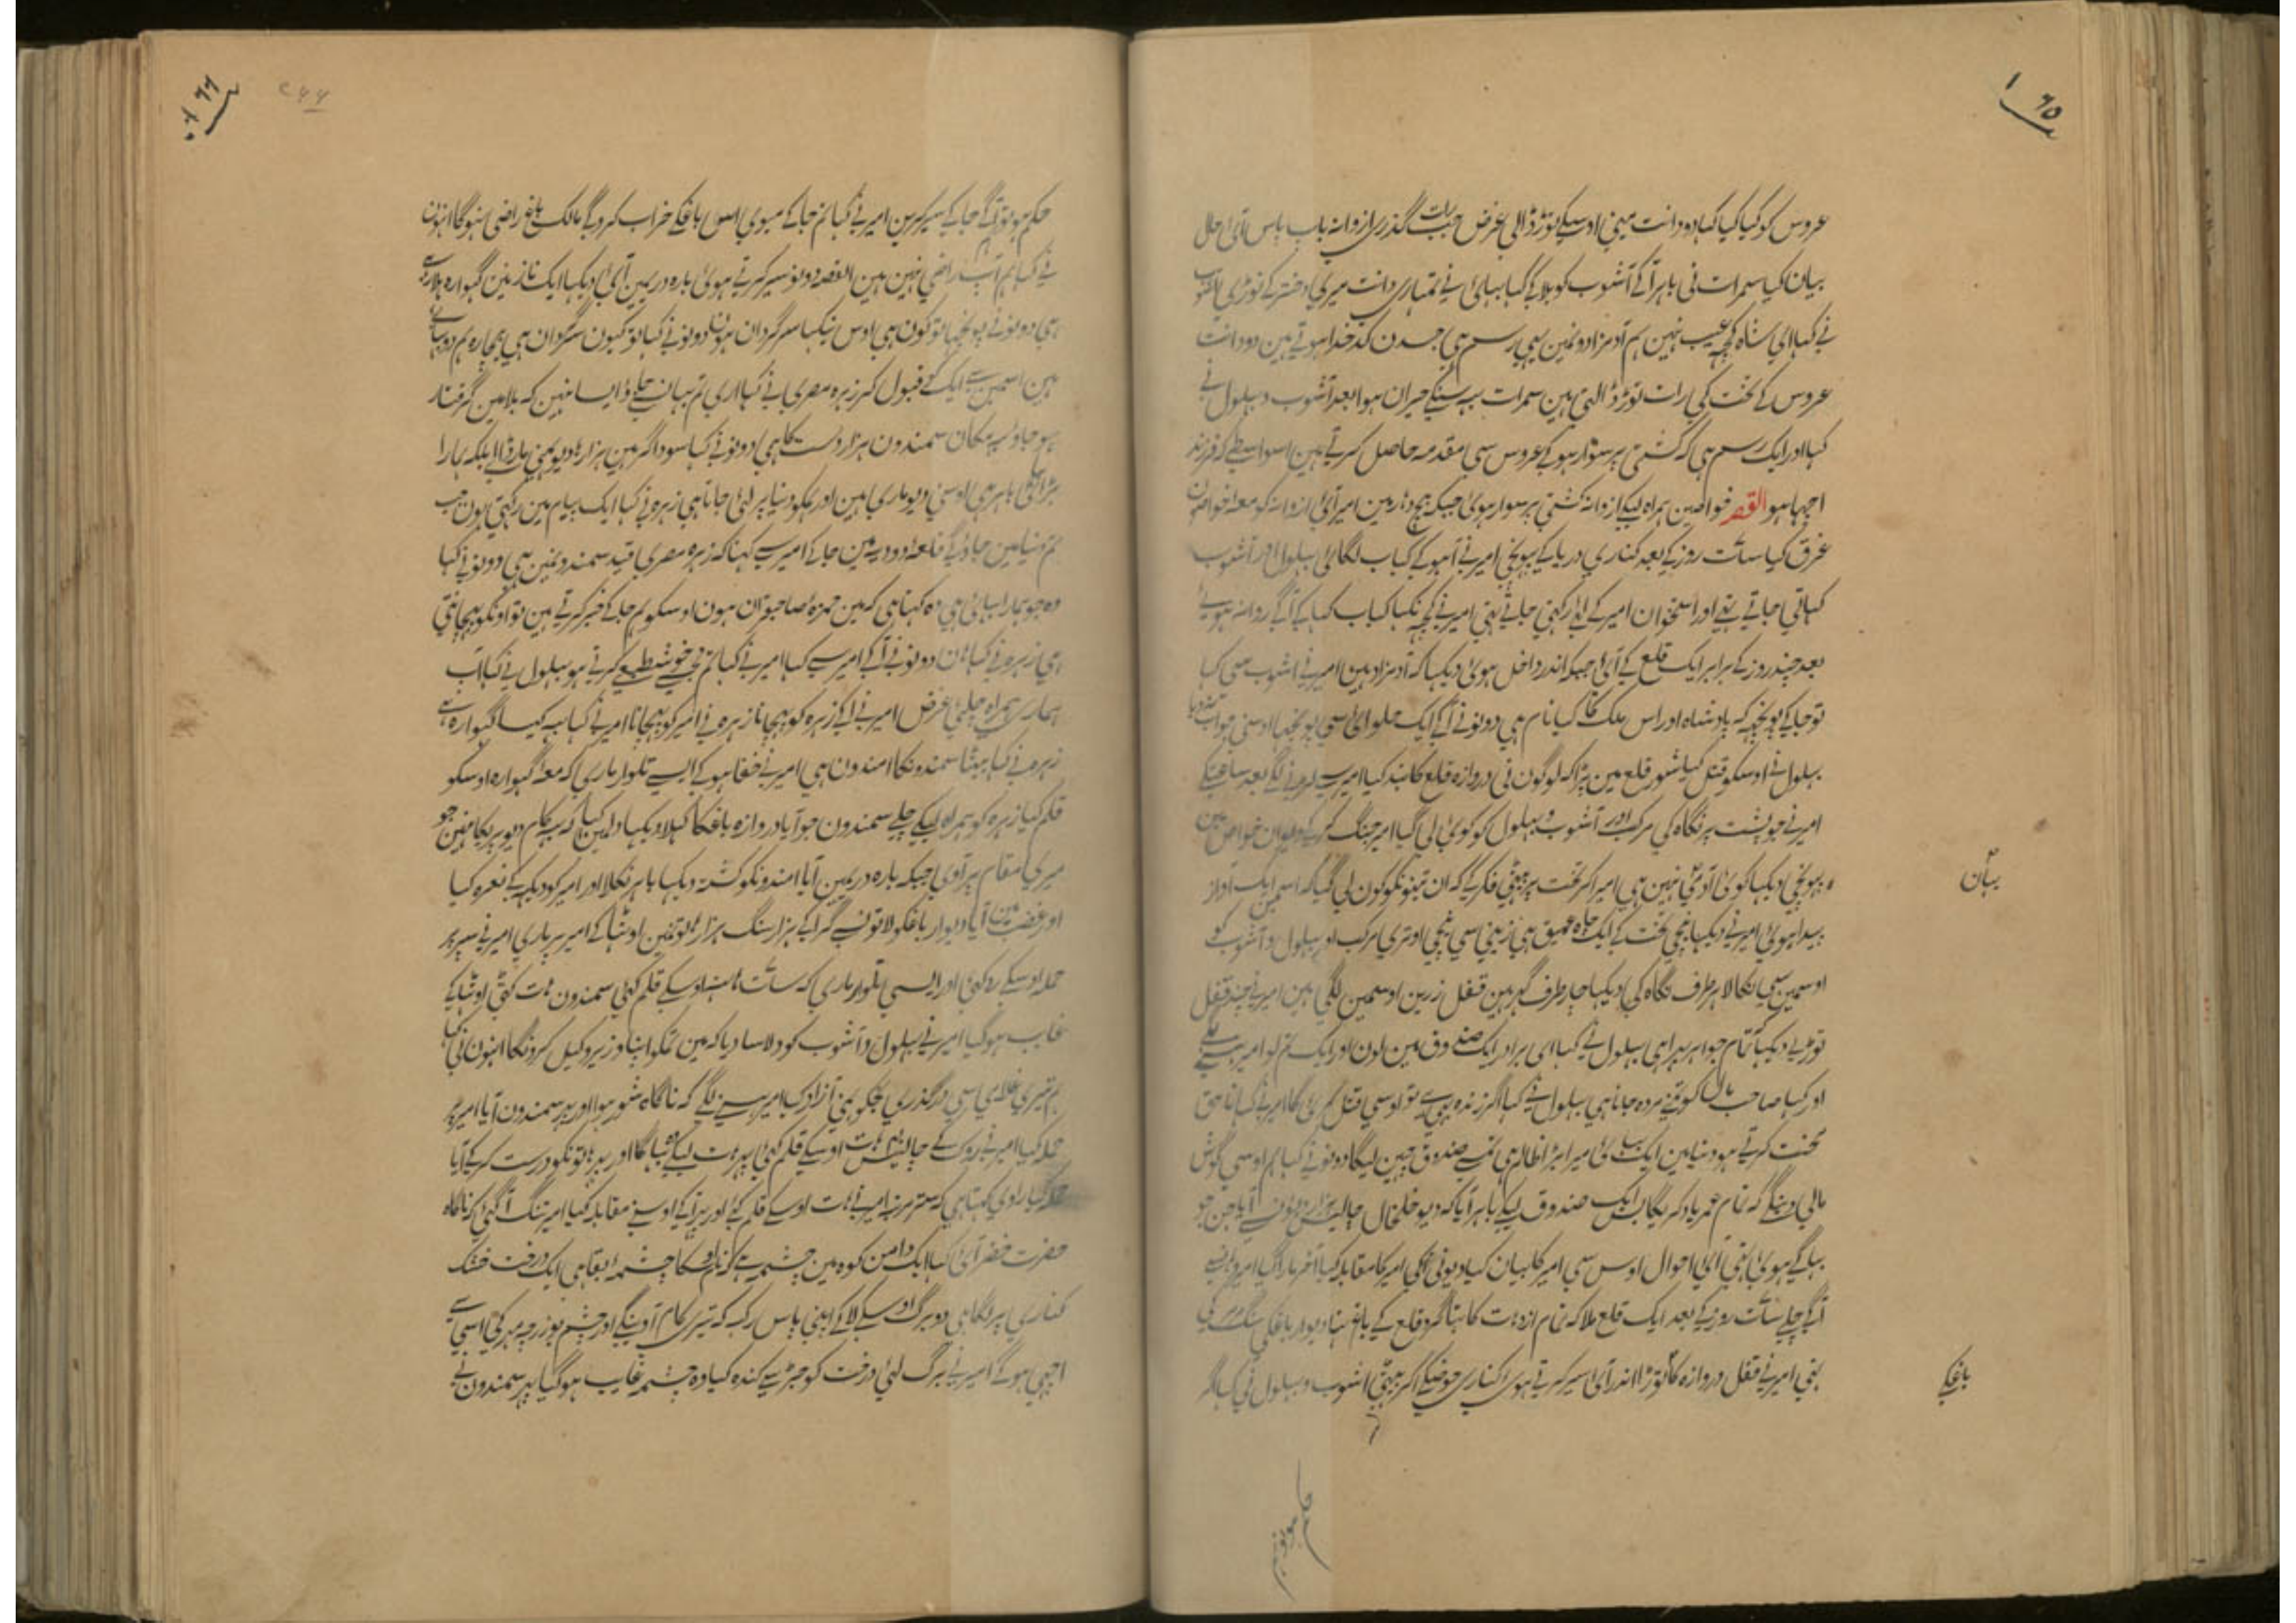 ۶۵
عروس کو کیا کیا کہا دو دانت مینی اوسیکے توڑ ڈالی غرض جب رات گذری ازوانہ باپ پاس آئی احوال
بیان کیا سمرات نی باہر آکے آشوب کو بلاکے کہا بہائی نے تمہاری دانت میری دختر کے توڑی آشوب
نے کہا ای شاہ کچہ عیب نہین ہم آدمزادونمین یہی رسم ہی جسدن کدخدا ہوتے ہین دو دانت
عروس کے تخت کی رات توڑ ڈالتی ہین سمرات یہ سنکے حیران ہوا بعد آشوب و بہلول نے
کہا اور ایک رسم ہی کہ کشتی پر سوار ہوکے عروس سی مقدمہ حاصل کرتے ہین اسواسطے کہ فرزند
اچہا ہو القصہ خواصین ہمراہ لیکے ازوانہ کشتی پر سوار ہوئی جبکہ بیچ دہار مین امیر آئی ازوانہ کو معہ خواصان
غرق کیا سات روز کے بعد کناری دریا کے پہونچی امیر نے آہو کے کباب لگائی بہلول اور آشوب
کہاتی جاتے تہے اور استخوان امیر کے آگے رکہتی جاتے تہی امیر نے کچہ نکہا کباب کہا کے آگے روانہ ہوئے
بعد چند روز کے برابر ایک قلع کے آئی جبکہ اندر داخل ہوئی دیکہا کہ آدمزاد ہین امیر نے آشوب سی کہا
تو جاکے پونچہہ کہ بادشاہ اور اس ملک کا کیا نام ہی دونو نے آکے ایک حلوائی سی پونچہا اوسنی جواب ندیا
بہلول نے اوسکو قتل کیا شور قلع مین پڑا کہ لوگون نی دروازہ قلع کا بند کیا امیر سے لڑنے لگے بعد ساعتکے
امیر نے جو پشت پر نگاہ کی مرکب اور آشوب و بہلول کو کوئی لی گیا امیر جنگ کرکے دیوان خواص مین
پہونچی دیکہا کوئی آدمی نہین ہی امیر آکر تخت پر بیٹہی فکر کے کہ ان تینونکو کون لی گیا کہ اسمین ایک آواز
بیان
پیدا ہوئی امیر نے دیکہا نیچی تخت کے ایک چاہ عمیق ہی زینی سی نیچی اوتری مرکب اور بہلول و آشوب کو
اوسمین سی نکالا ہر طرف نگاہ کی دیکہا چار طرف گہر ہین قفل زرین اوسمین لگی ہین امیر نے چند قفل
توڑے دیکہا تمام جواہر بہرا ہی بہلول نے کہا ای برادر ایک صندوق مین لون اور ایک تم لو امیر ہنسے
اور کہا صاحب مال کو تمنے مردہ جانا ہی بہلول نے کہا اگر زندہ ہی تو اوسی قتل کرینگا امیر نے کہا ناحق
محنت کرتے ہو دنیا مین ایک بہائی میرا بڑا ظالم ہی تمسے صندوق چہین لیگا دونو نے کہا ہم اوسی گوش
مالی دینگے کہ تمام عمر یاد کریگا پس ایک صندوق لیکے باہر آیا کہ دیو خلخال چالیس ہزار دیون سے آیا جن جو
بہاگے ہوئی تہی آئی احوال اوس سی امیر کا بیان کیا دیونی نکی امیر کا مقابلہ کیا آخر مارا گیا امیر وہانسے
آگے چلے سات روز کے بعد ایک قلع ملا کہ تمام ازدہات کا بنا گرد قلع کے باغ تہا دیوار باغکی سنگ مرمر کی
تہی امیر نے قفل دروازہ کا توڑا اندر آئی سیر کرتے ہوی کناری حوضکے آکر بیٹہی آشوب و بہلول نی کہا اگر
باغکے
۶۶
۲۶۶
حکم ہو تو آگے جاکے سیر کرین امیر نے کہا تم جاکے میوی اس باغکے خراب کروگے مالک باغ راضی نہوگا انہون
نے کہا ہم آپ راضی نہین ہین القصہ دونو سیر کرتے ہوئی بارہ دریمین آئی دیکہا ایک نازنین گہوارہ ہلارہے
ہی دونو نے پونچہا تو کون ہی اوس نیکہا سرگردان ہون دونو نے کہا تو کیون سرگردان ہی بیچارہ ہم دو بہائی
ہین اسمین سے ایک کے قبول کر زہرہ مصری نے کہا اری تم یہان سے جاؤ ایسا نہین کہ بلا مین گرفتار
ہو جاو یہ مکان سمندون ہزار دست کا ہی دونو نے کہا سوداگر ہین ہزارہا دیو ہمنی مار ڈالے بلکہ ہمارا
بڑا بہائی باہر ہی اوسنی دیو ماری ہین اور ہمکو دنیا پر لئی جاتا ہی زہرہ نے کہا ایک پیام مین رکہتی ہون جب
تم دنیا مین جاؤگے قلعہ دودیہ مین جاکے امیر سے کہنا کہ زہرہ مصری قید سمندونمین ہی دونو نے کہا
وہ جو ہمارا بہائی ہی وہ کہتا ہی کہ مین حمزہ صاحبقران ہون اوسکو ہم جاکے خبر کرتے ہین تو اونکو پہچانتی
ہی زہرہ نے کہا ہان دونو نے آکے امیر سے کہا امیر نے کہا تم مجہے خوشطبعی کرتے ہو بہلول نے کہا آپ
ہماری ہمراہ چلئی غرض امیر نے آکے زہرہ کو پہچانا زہرہ نے امیر کو پہچانا امیر نے کہا یہ کیسا گہوارہ ہے
زہرہ نے کہا بیٹا سمندونکا امندون ہی امیر نے خفا ہوکے ایسے تلوار ماری کہ معہ گہوارہ اوسکو
قلم کیا زہرہ کو ہمراہ لیکے چلے سمندون جو آیا دروازہ باغکا کہلا دیکہا دلمین کہا کہ یہ کام دیو پریکا نہین جو
میری مقام پر آوی جبکہ بارہ دریمین آیا امندونکو کشتہ دیکہا باہر نکلا اور امیر کو دیکہہ کے نعرہ کیا
اور غضب مین آیا دیوار باغکو لاتون سے گراکے ہزار سنگ ہزار ہاتونمین اوٹہا کے امیر پر ماری امیر نے سپر پر
حملہ اوسکے روکہی اور ایسی تلوار ماری کہ سات ہات اوسکے قلم کئی سمندون ہات کٹی اوٹہاکے
غایب ہوگیا امیر نے بہلول و آشوب کو دلاسا دیا کہ مین تمکو اپنا وزیر و کیل کرونگا انہون نی کہا
ہم تیری غلامی سی درگذری تجکو ہمنی آزاد کیا امیر ہنسنے لگے کہ ناگاہ شور ہوا اور پہر سمندون آیا امیر پر
حملہ کیا امیر نے روک کے چالیس ہات اوسکے قلم کئی پہر ہات لیکے بہاگا اور پہر ہاتونکو درست کرکے آیا
حملہ کیا راوی کہتا ہی کہ ستر مرتبہ امیر نے ہات اوسکے قلم کئے اور پہر آکے اوسنے مقابلہ کیا امیر تنگ آگئی کہ ناگاہ
حضرت خضر آئی کہا ایک دامن کوہ مین چشمہ ہے کہ نام اوسکا چشمہ بقا ہی ایک درخت خشک
کناری پر لگا ہی دو برگ اوسکے لاکے اپنی پاس رکہہ کہ تیری کام آوینگے اور چشم بوزرچمہر کی اسی سے
اچہی ہوگے امیر نے برگ لئی درخت کو جڑ سے کندہ کیا وہ چشمہ غایب ہوگیا پہر سمندون نے